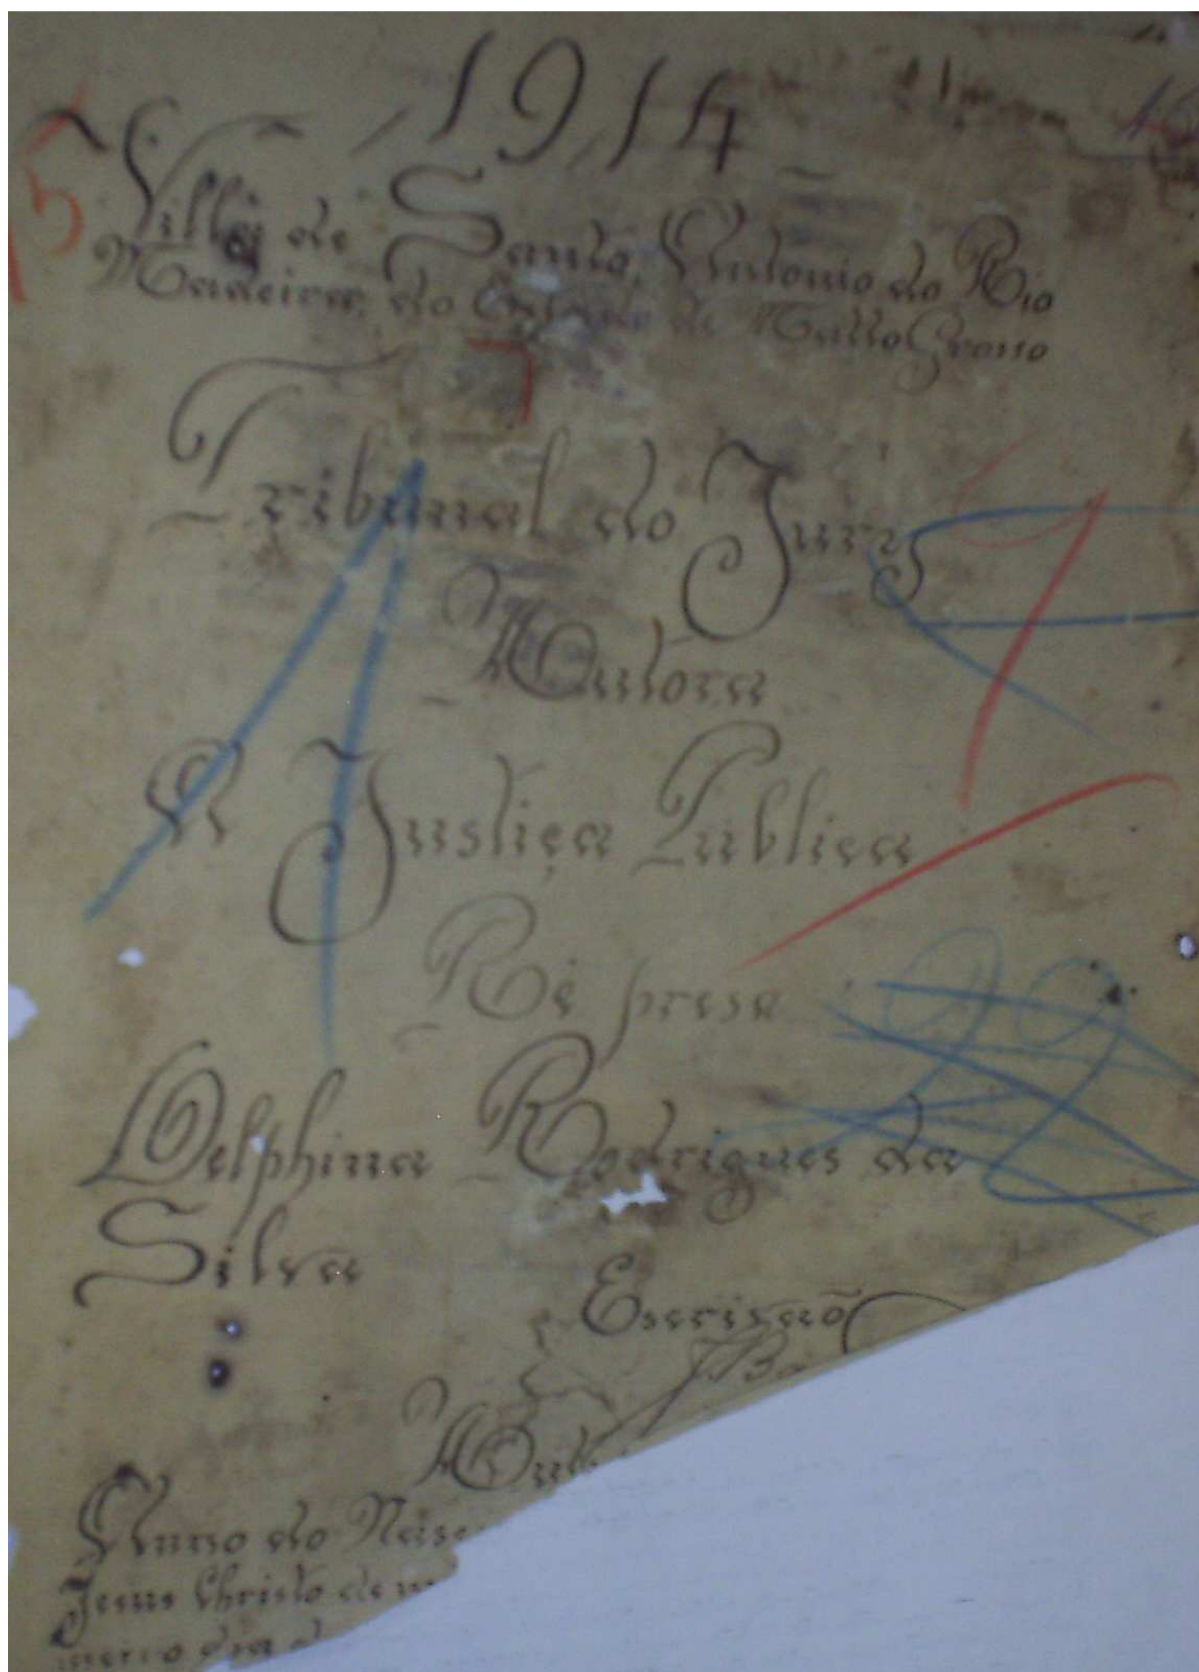 1914
Villa de Santo Antonio do Rio
Madeira, do Estado de Matto Grosso
Tribunal do Jury
Autora
A Justiça Publica
Ré presa
Delphina Rodrigues da
Silva
Escrivaõ
Anno do Nasc
Jesus Christo de m
meiro dia d